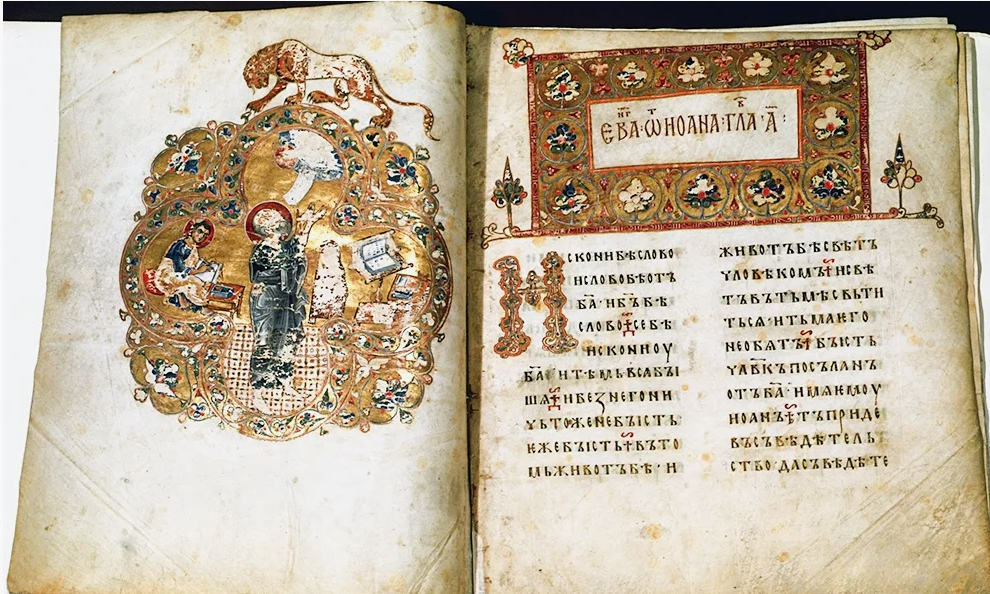 ЕВА·Ѡ ИОАНА·ГЛА·А҃:
ИСКОНИБѢСЛОВО
ИСЛОВОБѢОТЪ
БА҃·ИБ҃ЪБѢ
СЛОВО СЕБѢ
ИСКОНИОУ
БА҃·ИТѢМЬВСѦБЫ
ШѦ ИБЕꙀНЕГОНИ
ЧЬТОЖЕНЕБЫСТЬ·
ЕЖЕБЫСТЬ ВЪТО
МЬЖИВОТЪБѢ·И
ЖИВОТЪБѢСВѢТЪ
ЧЛОВѢКОМЪ ИСВѢ
ТЪВЪТЬМѢСВЬТИ
ТЬСѦ·ИТЬМАЕГО
НЕОБѦТЪ БЫСТЬ
ЧЛ҃ВКЪПОСЪЛАНЪ
ОТЪБА҃·ИМѦЕМОУ
ИОАНЪ ТЪПРИДЕ
ВЪСЪВѢДѢТЕЛЬ
СТВО·ДАСЪВѢДѢТЕ